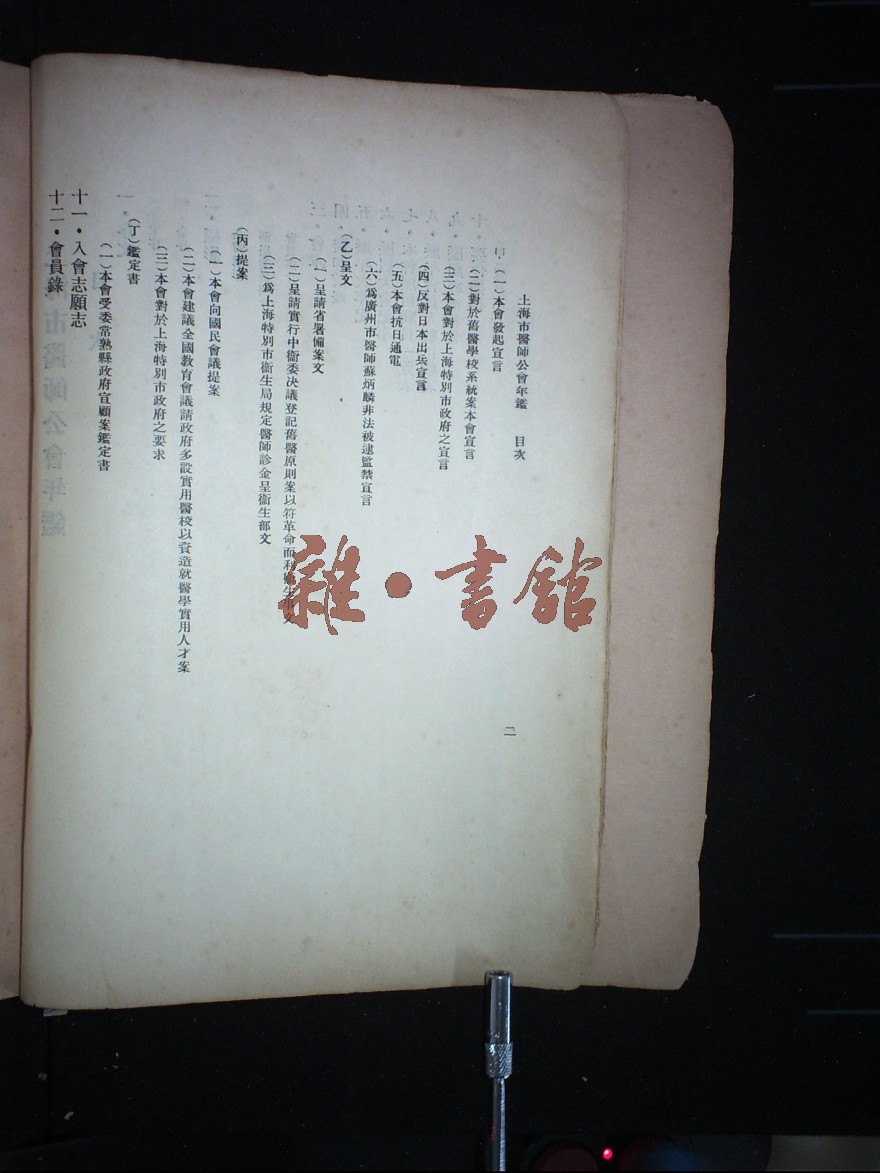 上海市醫師公會年鑑　目次
二
甲（一）本會發起宣言
（二）對於舊醫學校系統案本會宣言
（三）本會對於上海特別市政府之宣言
（四）反對日本出兵宣言
（五）本會抗日通電
（六）爲廣州市醫師蘇炳麟非法被逮監禁宣言
（乙）呈文
（一）呈請省署備案文
（二）呈請實行中衞委決議登記舊醫原則案以符革命而利衞生部文
（三）爲上海特別市衞生局規定醫師診金呈衞生部文
（丙）提案
（一）本會向國民會議提案
（二）本會建議全國教育會議請政府多設實用醫校以資造就醫學實用人才案
（三）本會對於上海特別市政府之要求
（丁）鑑定書
（一）本會受委常熟縣政府宣顧案鑑定書
十一・入會志願志
十二・會員錄
雜・書館